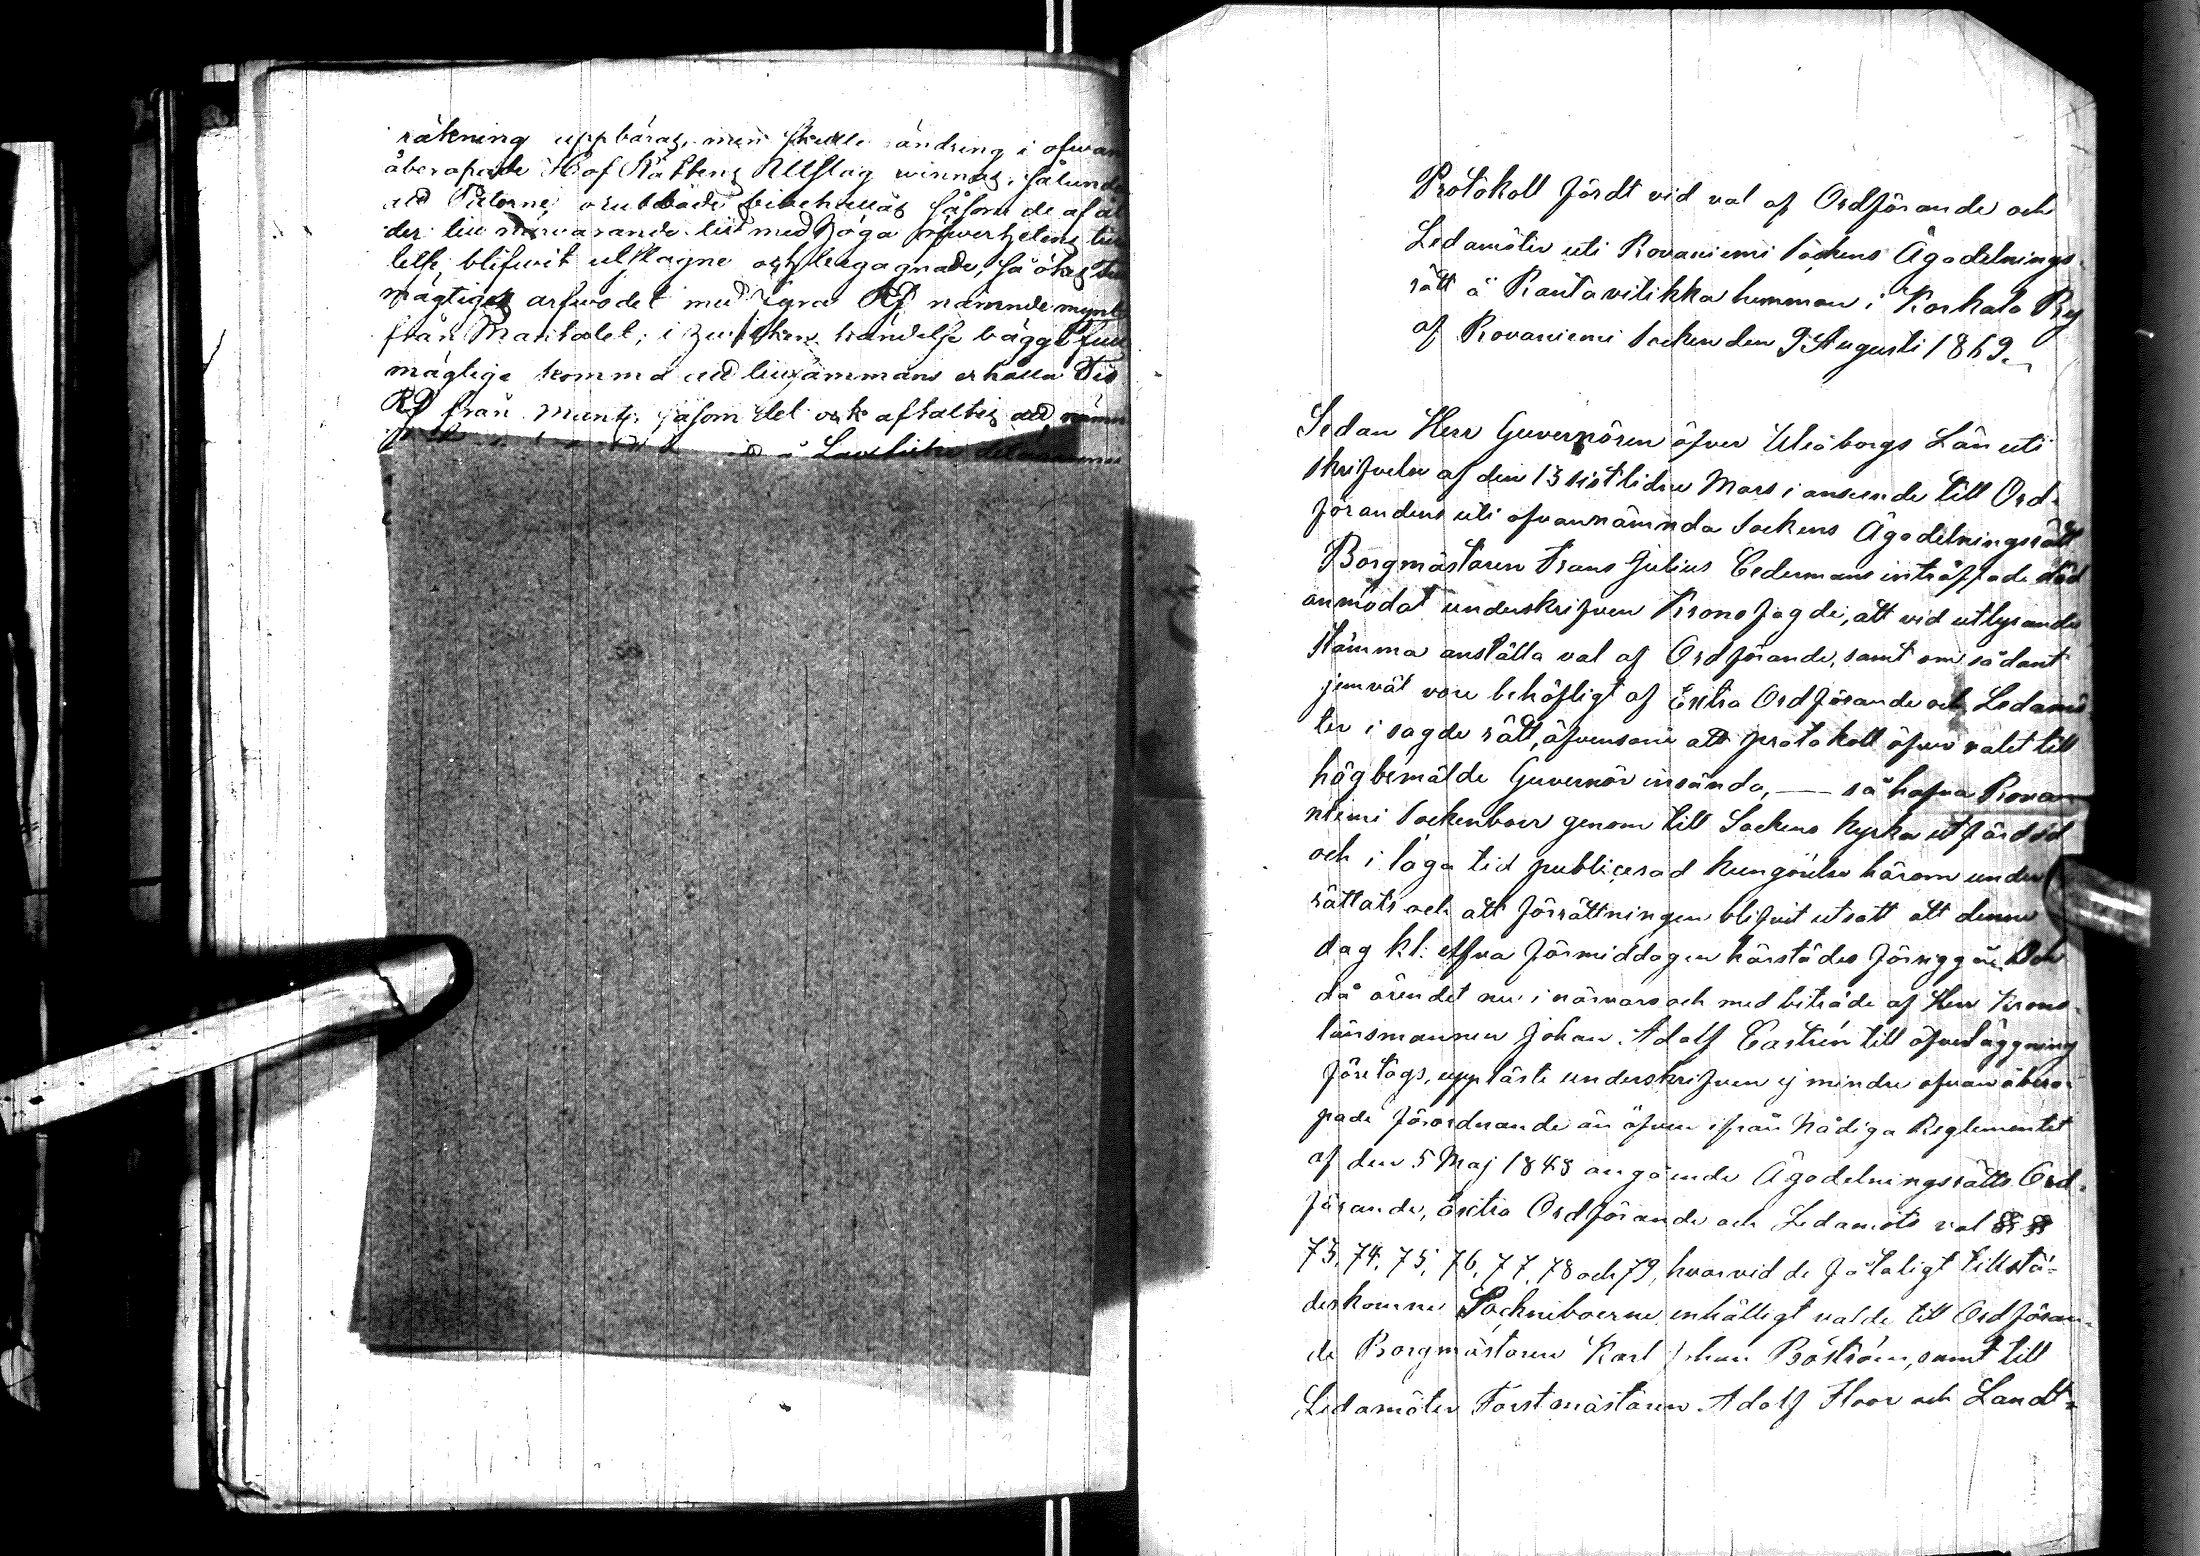 räkning uppbäras, men skulle ändring i ofwan
åberopade Hof Rättens Utslag winnas, sålunda
att orubbade bibehållas såsom de af
der til närwarande tid med Höga öfwerhetens
blifwit uttagne och
mägtiges arfwodet med fyra Rd nämnde mynt
från i händelse bägge full
mägtige komma att tilsammans erhålla Tio
Rd från såsom det ock aftaltes att
Protokoll fördt vid val af Ordförande och
Ledamöter uti Rovaniemi Sockens Ägodelnings-
rätt å Rantavitikka hemman i Korkalo By
af Rovaniemi Socken den 9 Augusti 1869.
Sedan Herr Guvernören öfver Uleåborgs Län uti
skrifvelse af den 13 sistlidne Mars i anseende till Ord-
förandens uti ofvannämnda Sockens Ägodelningsrätt
Borgmästaren Frans Julius Cedermans inträffade död
anmodat underskrifven Kronofogde, att vid utlysande
stämma anställa val af Ordförande, samt om sådant
jemväl vore behöfligt af Extra Ordförande och Ledamö-
ter i sagde rätt, äfvensom att protokoll öfver valet till
högbemälde Guvernör insända, — så hafva Rova-
niemi Sockenboer genom till Sockens kyrka utfärdad
och i laga tid publicerad kungörelse härom under
rättats och att förrättningen blifvit utsatt att denne
dag kl. elfva förmiddagen härstädes förnyga. Och
då ärendet nu i närvaro och med biträde af Herr Krono-
länsmannen Johan Adolf Castrén till öfverläggning
företogs, uppläste underskrifven ej mindre ofvanåbero-
pade förordnande än äfven ifrån Nådiga Reglementet
af den 5 Maj 1848 angående Ägodelningsrätts Ord-
förande, Extra Ordförande och Ledamots val §§
73, 74, 75, 76, 77, 78 och 79, hvarvid de fåtaligt tillstä-
deskomne Sockneboerne enhälligt valde till Ordföran-
de Borgmästaren Karl Johan Boström, samt till
Ledamöter Forstmästaren Adolf Floor och Landt-